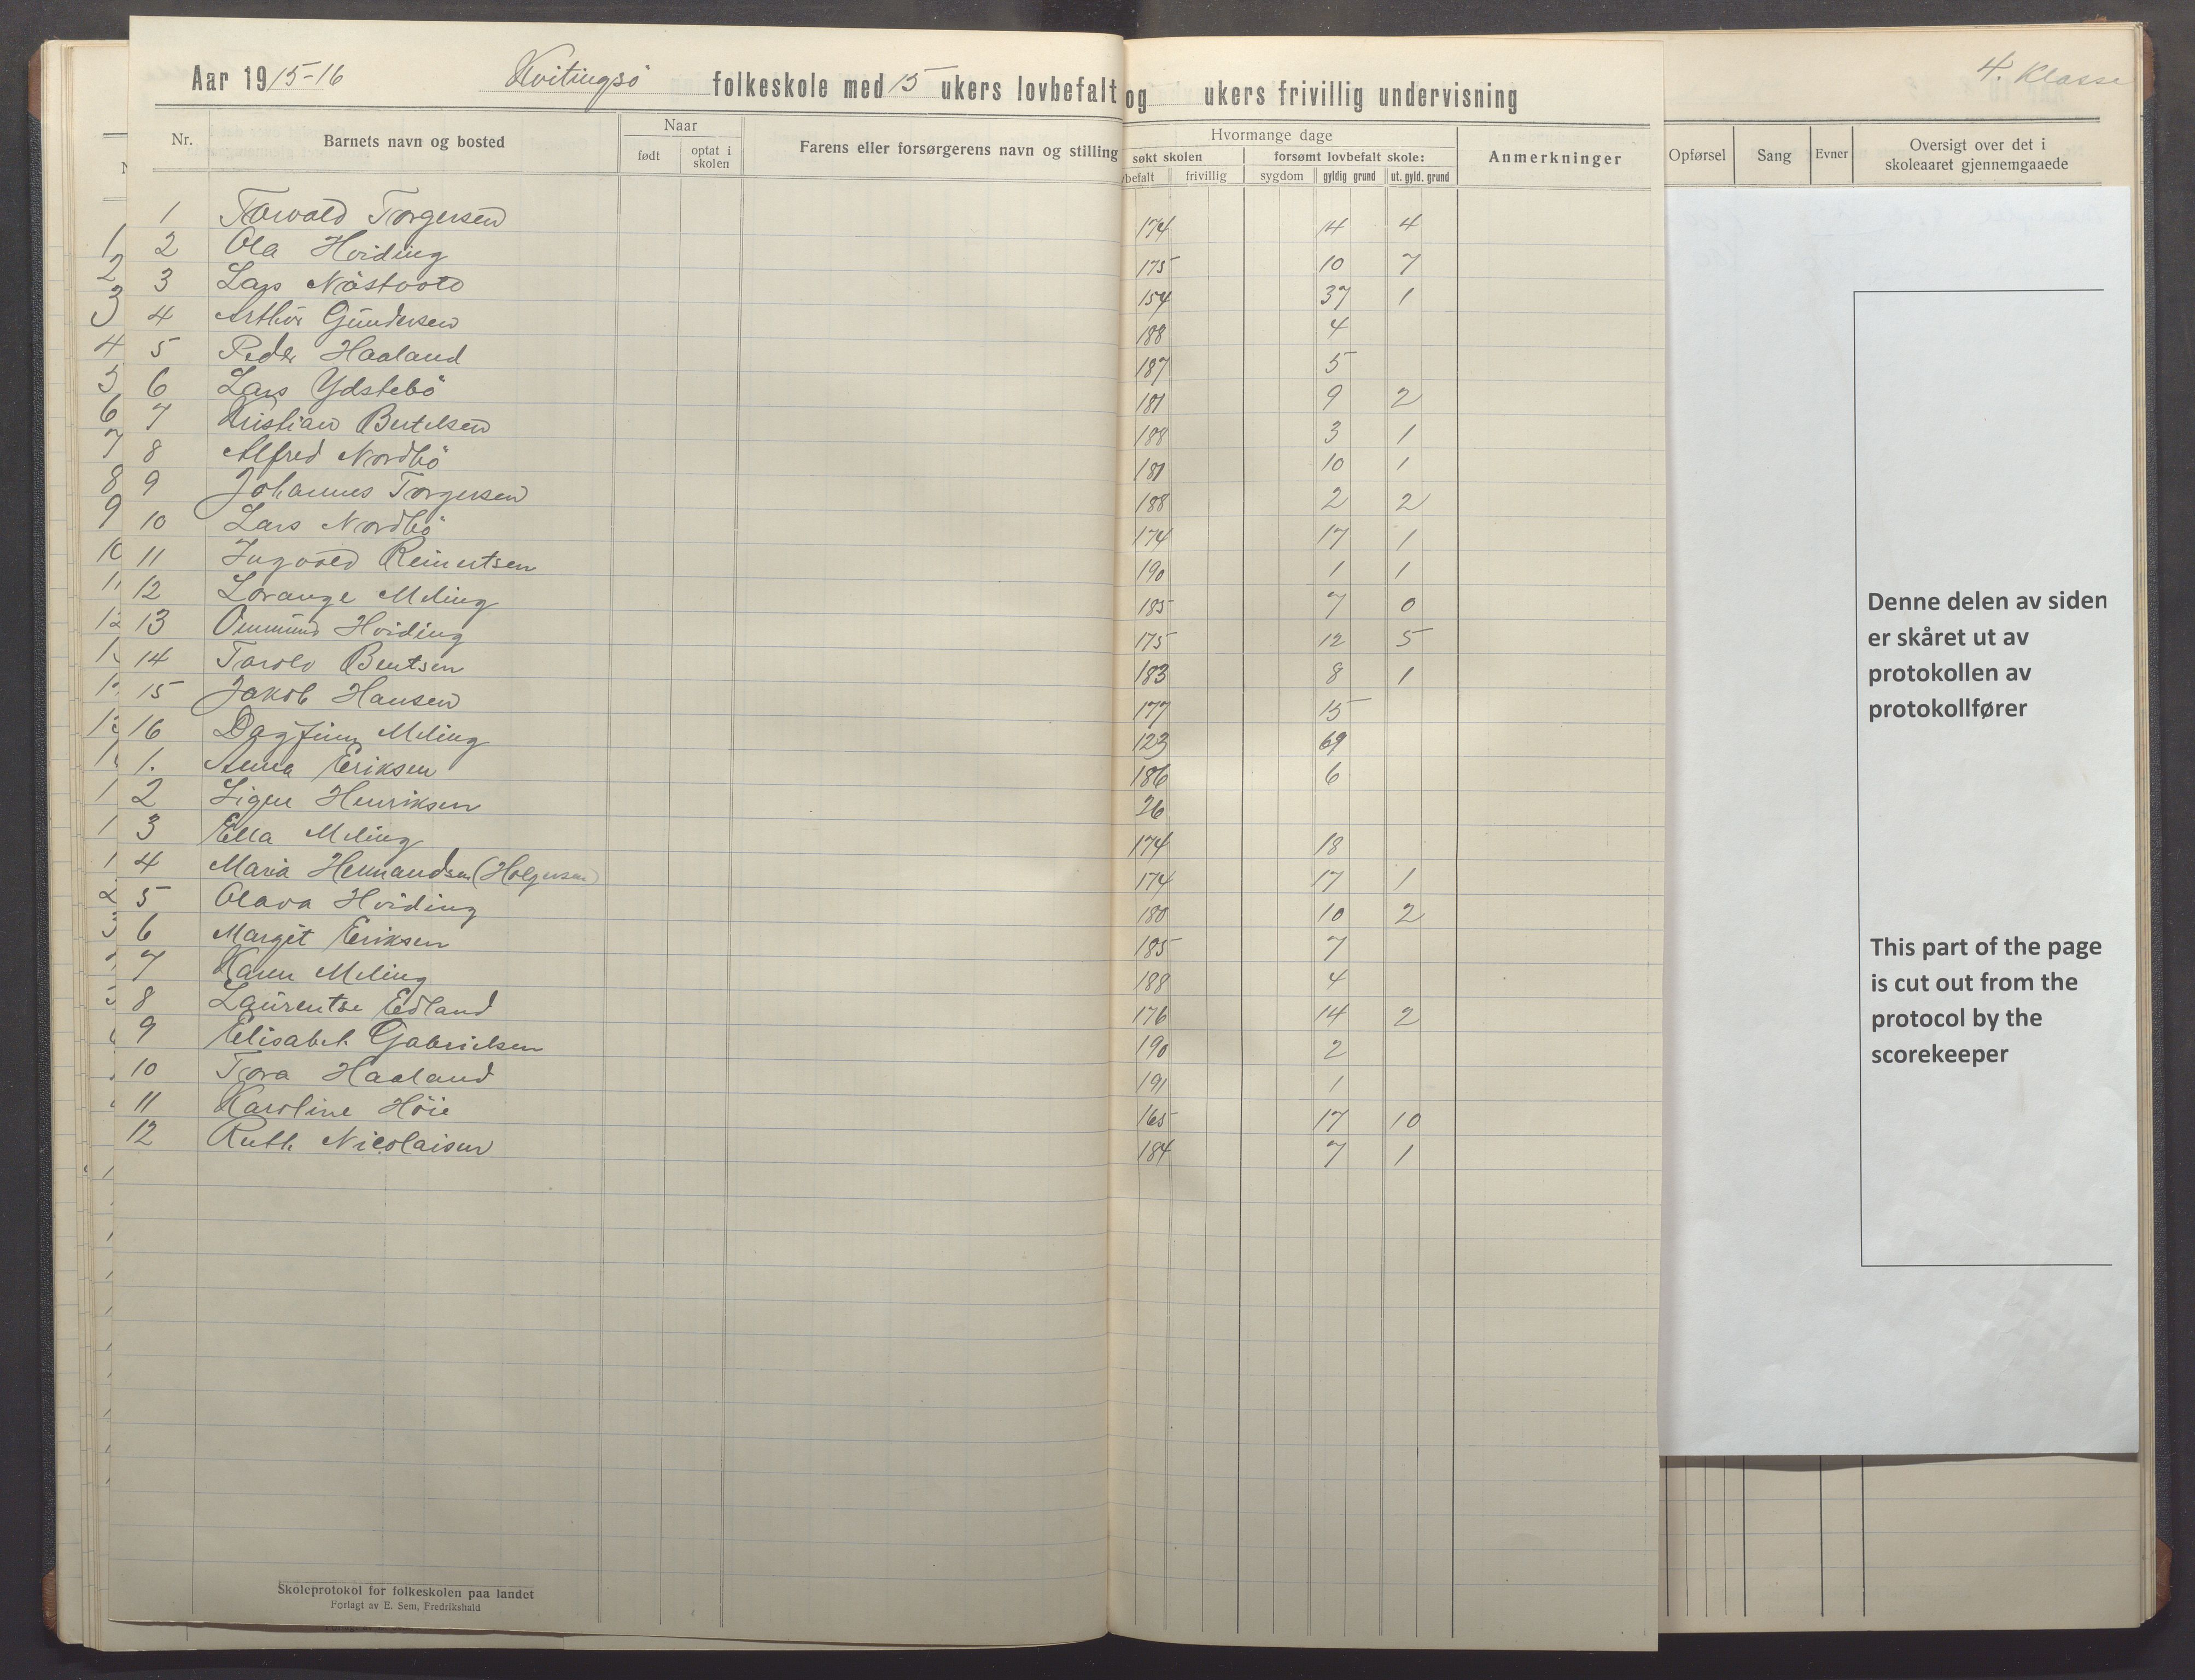 4. Klasse
Aar 1915-16 Kvitingsö folkeskole med 15 ukers lovbefalt og ukers frivillig undervisning
Nr. Barnets navn og bosted Naar født optat i skolen Farens eller forsørgerens navn og stilling Hvormange dage søkt skolen frivillig forsømt lovbefalt skole: sygdom gyldig grund ut. gyld. grund Anmerkninger Opførsel Sang Evner Oversigt over det i skoleaaret gjennemgaaede
1 Torvald Torgersen 174 14 4
2 Ola Hviding 175 10 7
3 Lars Nästvold 154 37 1
4 Arthur Gundersen 188 4
5 Peder Haaland 187 5
6 Lars Ydstebö 181 9 2
7 Kristian Bertelsen 188 3 1
8 Alfred Nordbö 181 10 1
9 Johannes Torgersen 188 2 2
10 Lars Nordbö 174 17 1
11 Ingvald Reinertsen 190 1 1
12 Lorange Meling 185 7 0
13 Ommund Hviding 175 12 5
14 Torolv Bentsen 183 8 1
15 Jakob Hansen 177 15
16 Dagfinn Meling 123 69
1. Anna Eriksen 186 6
2 Signe Henriksen 26
3 Ella Meling 174 18
4 Maria Hermandsen (Holgersen) 174 17 1
5 Olava Hviding 180 10 2
6 Margit Eriksen 185 7
7 Karen Meling 188 4
8 Laurentse Edland 176 14 2
9 Elisabet Gabrielsen 190 2
10 Tora Haaland 191 1
11 Karoline Höie 165 17 10
12 Ruth Nicolaisen 184 7 1
Denne delen av siden
er skåret ut av
protokollen av
protokollfører
This part of the page
is cut out from the
protocol by the
scorekeeper
Skoleprotokol for folkeskolen paa landet
Forlagt av E. Sem, Fredrikshald